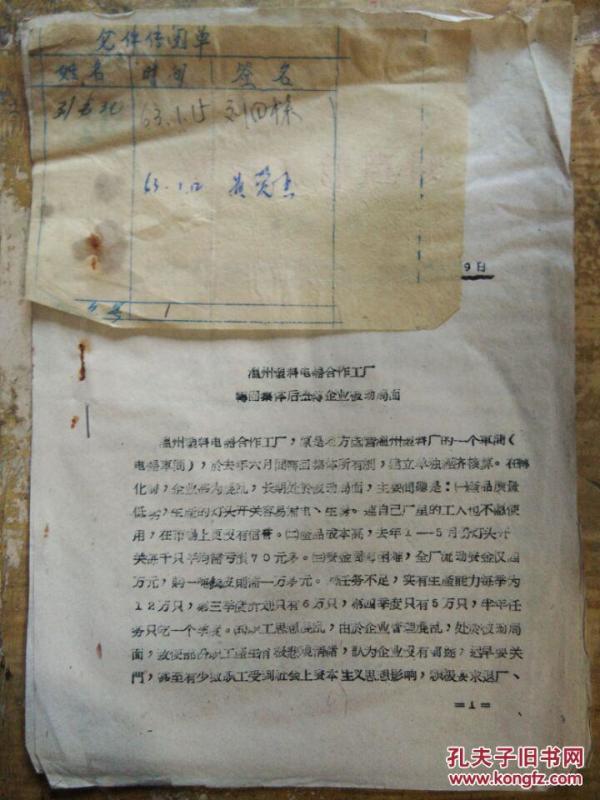 文件传阅单
姓名 时间 签名
63.1.15 刘
63.1.
1
9日
温州塑料电器合作工厂
转回集体后 企业被动局面
温州塑料电器合作工厂，原是地方国营温州塑料厂的一个车间（
电器车间），於去年六月间转回集体所有制，建立单独经济核算。在转
化时，企业 为混乱，长期处於被动局面，主要问题是：㈠产品质量
低劣，生产的灯头开关容易漏电、生锈。连自己厂里的工人也不愿使
用，在市场上更没有信誉。㈡产品成本高，去年1—5月份灯头开
关每千只平均需亏损70元多。㈢资金周转困难，全厂流动资金仅四
万元，购一 需一万多元。 任务不足，实有生产能力每季为
12万只，第三季度计划只有6万只，第四季度只有5万只，半年任
务只吃一个季度。 职工思想混乱，由於企业管理混乱，处於被动局
面，致使部份职工产生消极悲观情绪，认为企业没有前途，迟早要关
門，甚至有少数职工受到社会上资本主义思想影响，积极要求退厂、
=1=
孔夫子旧书网
www.kongfz.com